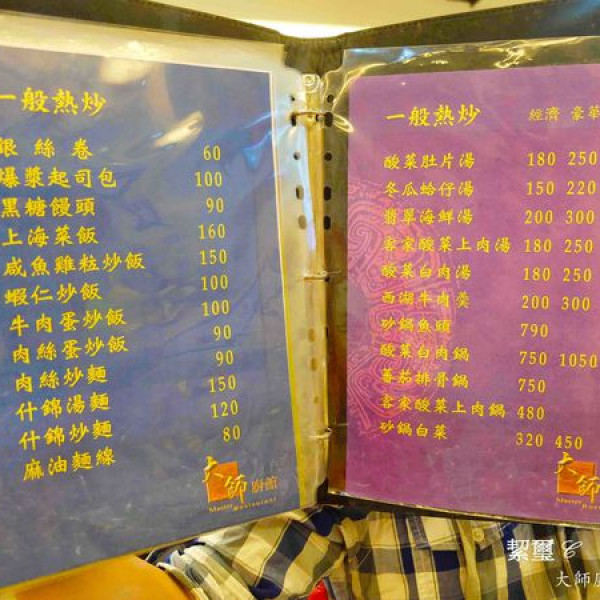 一般熱炒
銀絲卷 60
爆漿起司包 100
黑糖饅頭 90
上海菜飯 160
咸魚雞粒炒飯 150
蝦仁炒飯 100
牛肉蛋炒飯 100
肉絲蛋炒飯 90
肉絲炒麵 90
什錦湯麵 150
什錦炒麵 120
麻油麵線 80
大師廚館
Master Restaurant
一般熱炒 經濟 豪華
酸菜肚片湯 180 250
冬瓜蛤仔湯 150 220
翡翠海鮮湯 200 300
客家酸菜上肉湯 180 250
酸菜白肉湯 180 250
西湖牛肉羹 200 300
砂鍋魚頭 790
酸菜白肉鍋 750 1050
蕃茄排骨鍋 750
客家酸菜上肉鍋 480
砂鍋白菜 320 450
大師
Master
絜璽
大師